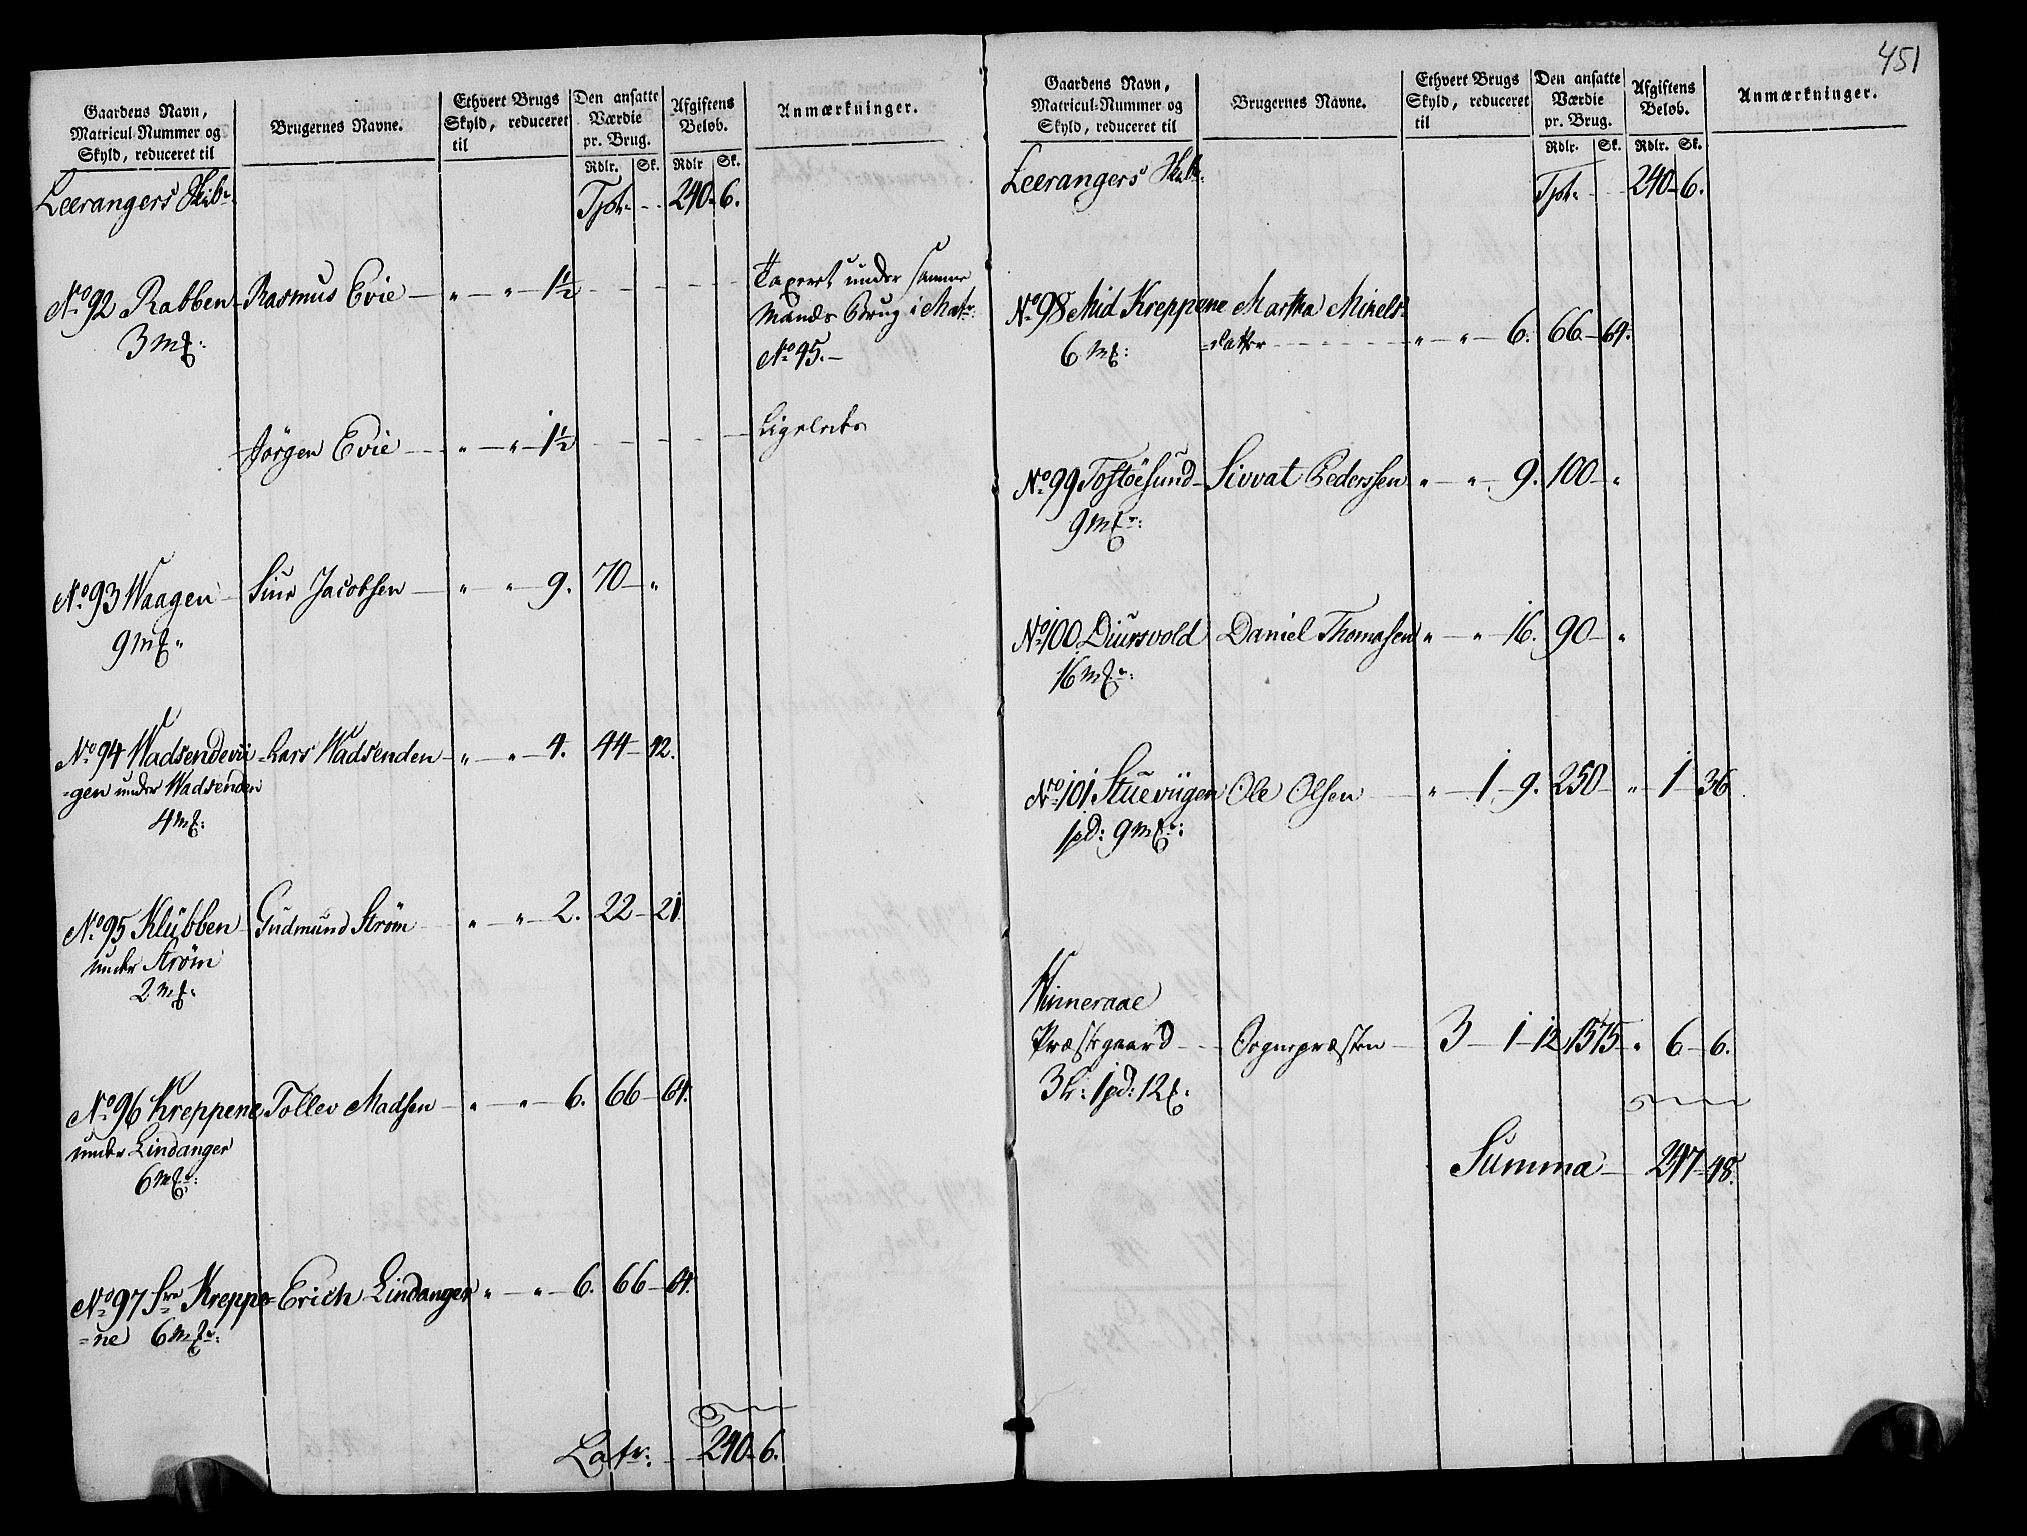 451
Gaardens Navn,
Matricul-Nummer og
Skyld, reduceret til
Brugernes Navne.
Ethvert Brugs
Skyld, reduceret
til
Den ansatte
Værdie
pr. Brug.
Rdlr. Sk.
Afgiftens
Beløb.
Rdlr Sk.
Anmærkninger.
Leerangers Skibr.
Tpt. 240 - 6.
No 92 Rabben Rasmus Evie " " 1½ Taxeret under samme
3 mk: Mands Brug i Matr:
No 45.
Jørgen Evie " " 1½ Ligeledes
No 93 Waagen Siur Jacobsen " " 9. 70 "
9 mk
No 94 Wadsendevii Lars Wadsenden " " 4. 44 - 42.
=gen under Wadsenden
4 mk:
No 95 Klubben Gudmund Strøm " " 2. 22 - 21
under Strøm
2 mk
No 96 Kreppene Tollev Madsen " " 6. 66 - 64.
under Lindanger
6 mk:
No 97 Kreppe= Erich Lindanger " " 6. 66 - 64.
=ne 6 mk:
Latr: 240 - 6.
Gaardens Navn,
Matricul-Nummer og
Skyld, reduceret til
Brugernes Navne.
Ethvert Brugs
Skyld, reduceret
til
Den ansatte
Værdie
pr. Brug.
Rdlr. Sk.
Afgiftens
Beløb.
Rdlr. Sk.
Anmærkninger.
Leerangers Skibr.
Tpt. 240 - 6.
No 98 Mid Kreppene Martha Mikels=
6 mk: =datter " " 6. 66 - 64.
No 99 Toftøesund Sivvat Pederssen " " 9. 100 "
9 mk:
No 100 Diursvold Daniel Thomassen " " 16. 90 "
16 mk:
No 101 Stueviigen Ole Olsen " 1 9. 250 " 1 36
1 pd: 9 mk:
Præstegaard Sognepræsten 3 1 12 1575 " 6 - 6.
3 L: 1 pd: 12 k:
Summa 247 - 48.